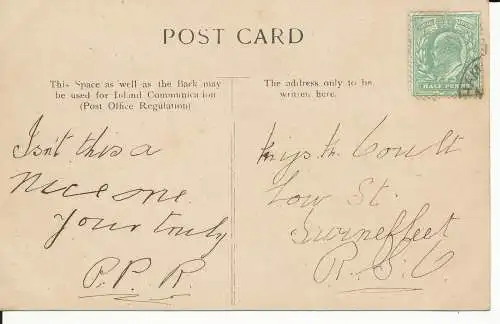 POST CARD
This Space as well as the Back may
be used for Inland Communication
(Post Office Regulation)
The address only to be
written here.
HALF PENNY
Isn't this a
nice one
Your truly
P.P.R.
Miss M. Coult
Low St.
Swinefleet
R.S.O